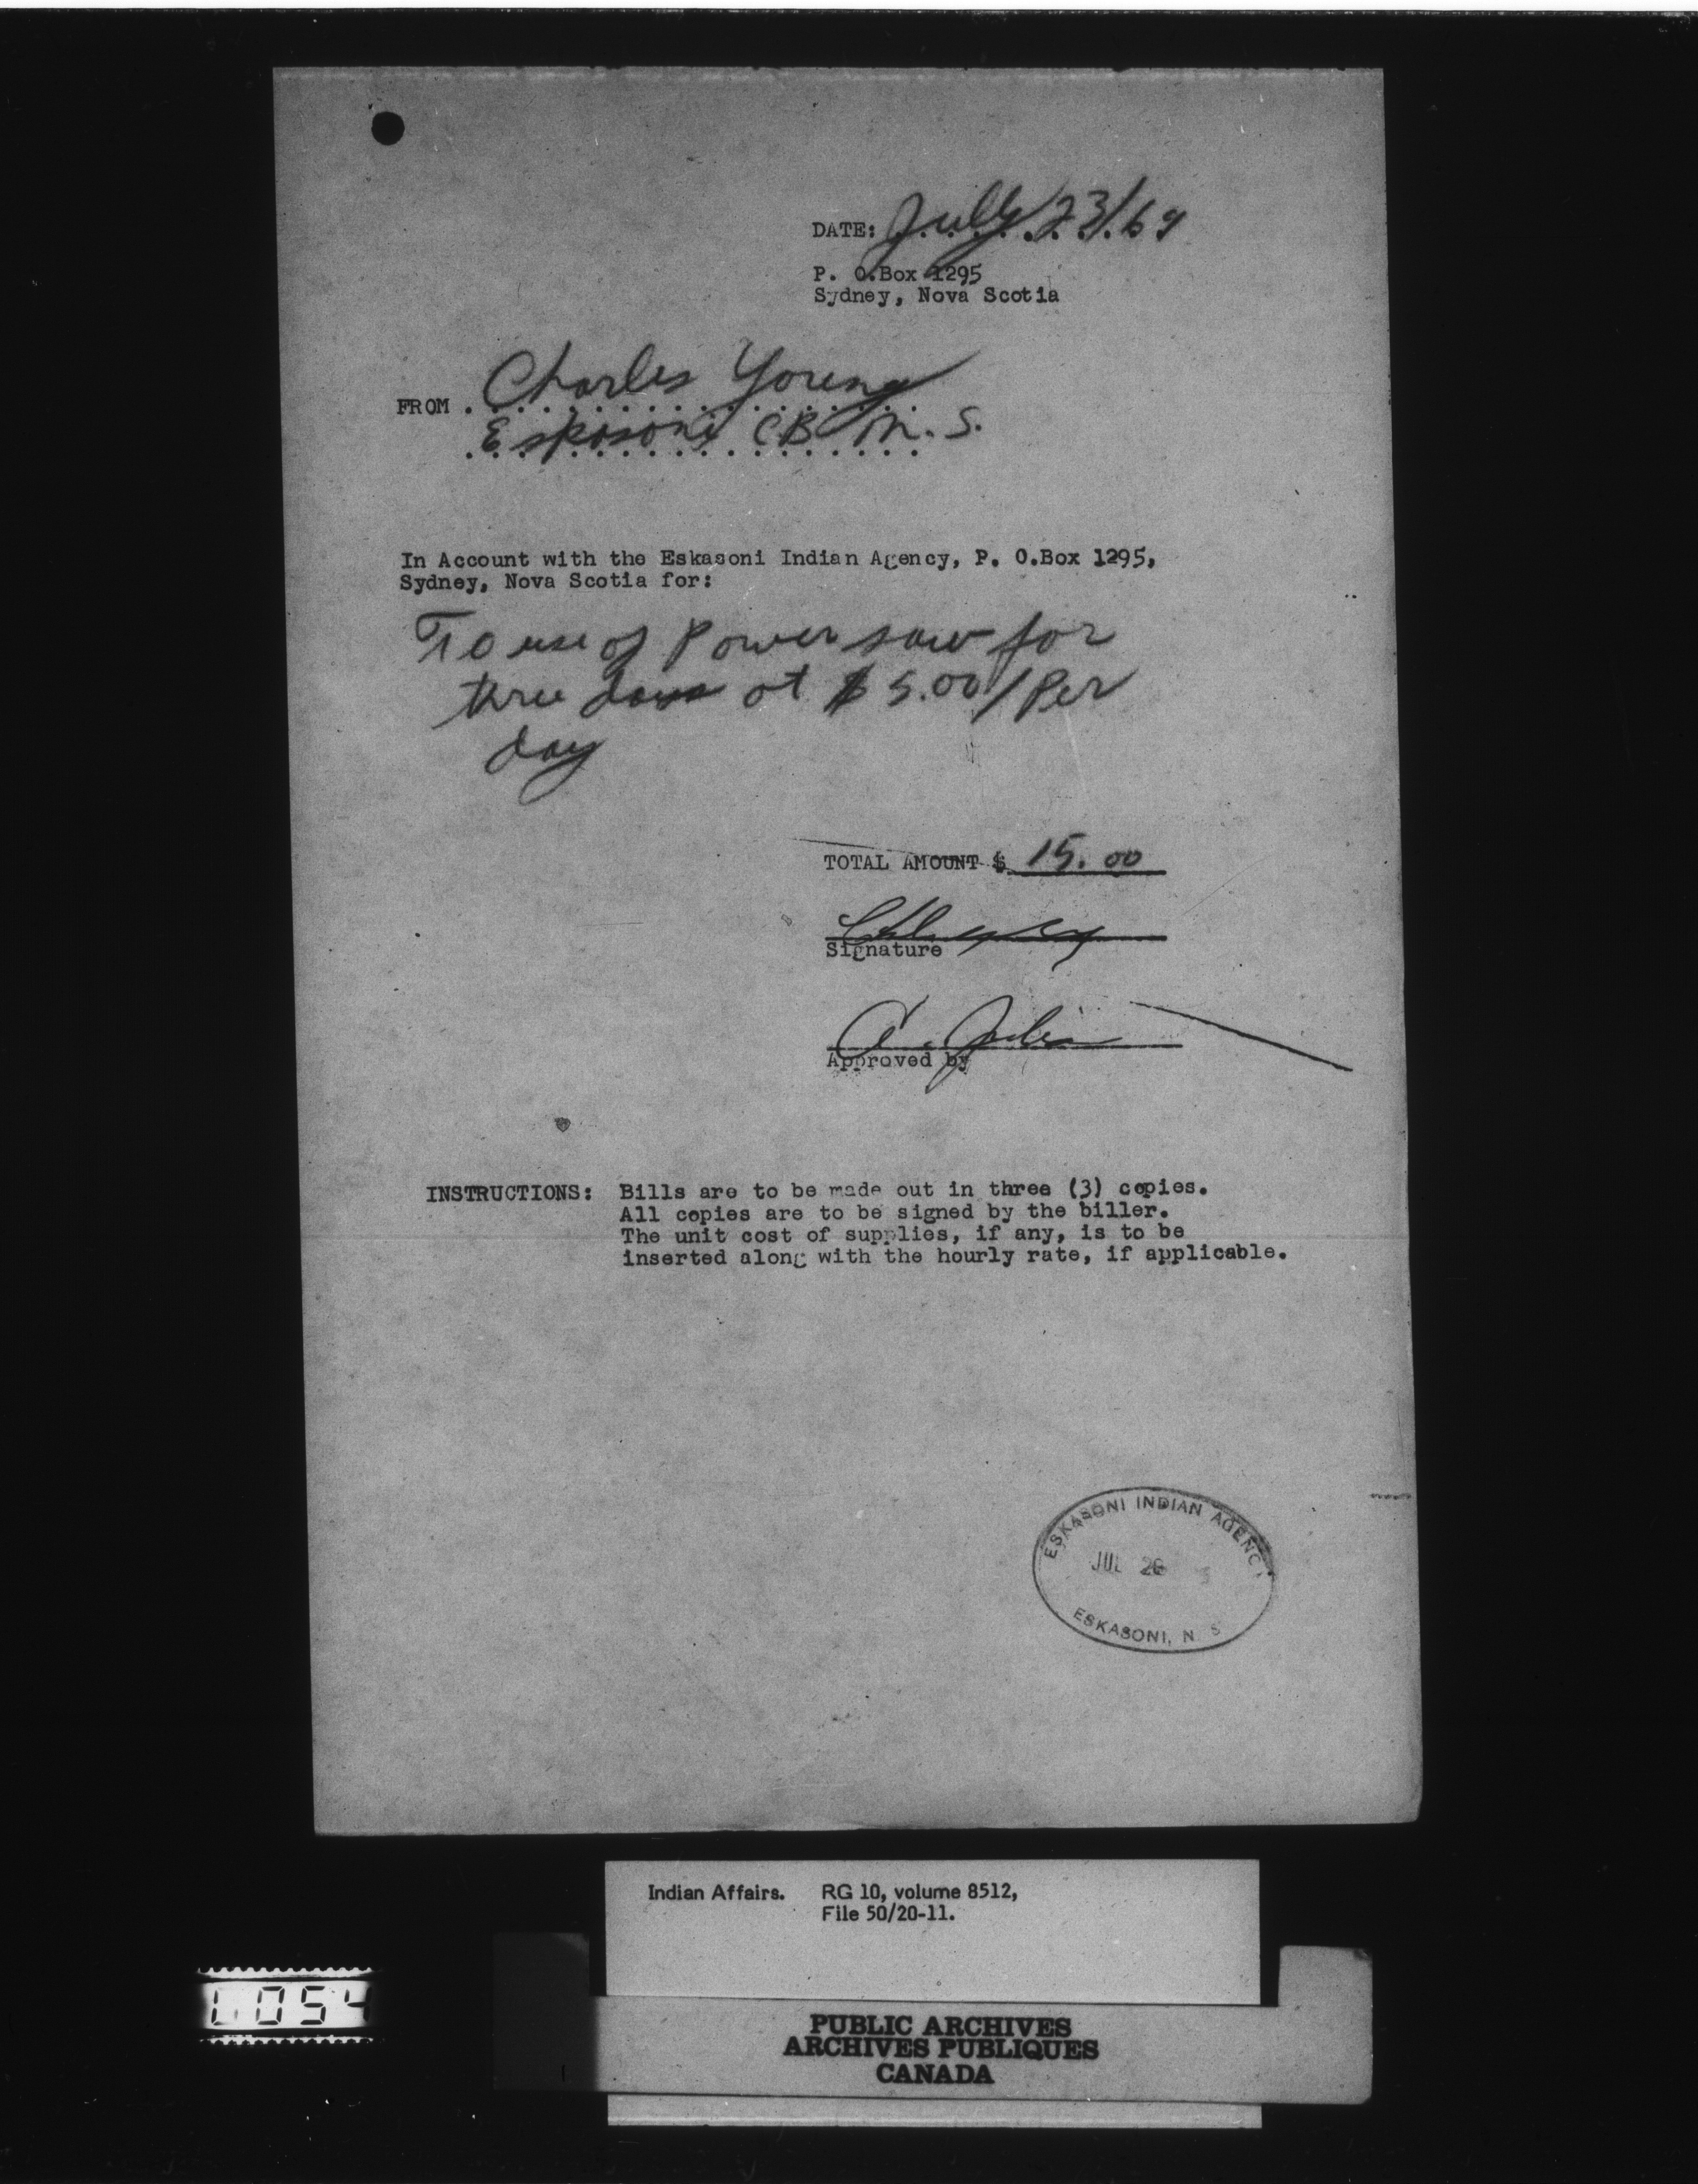 DATE: July 23/69
P. O.Box 1295
Sydney, Nova Scotia
FROM Charles Young
Eskasoni CB N.S.
In Account with the Eskasoni Indian Agency, P. O.Box 1295,
Sydney, Nova Scotia for:
To use of Power saw for
three days at $5.00/Per
day
TOTAL AMOUNT $ 15.00
Signature
Approved by
INSTRUCTIONS: Bills are to be made out in three (3) copies.
All copies are to be signed by the biller.
The unit cost of supplies, if any, is to be
inserted along with the hourly rate, if applicable.
ESKASONI INDIAN AGENCY
JUL 26
ESKASONI, N S
Indian Affairs. RG 10, volume 8512,
File 50/20-11.
054
PUBLIC ARCHIVES
ARCHIVES PUBLIQUES
CANADA